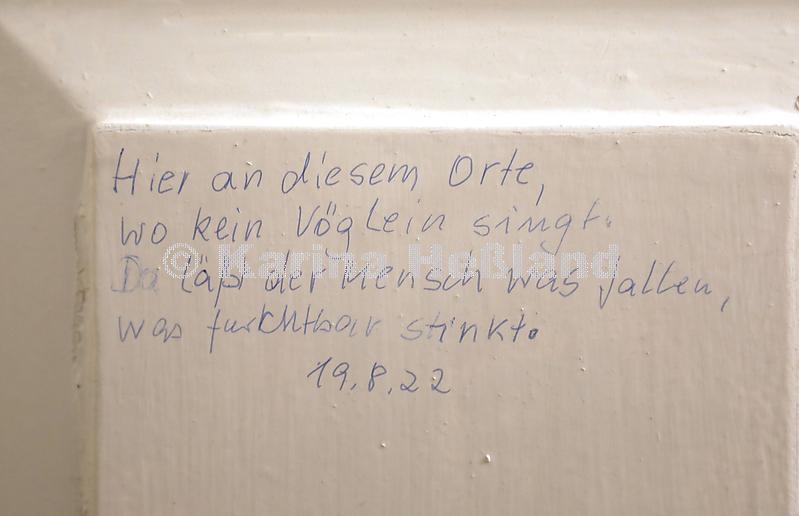 Hier an diesem Orte,
wo kein Vöglein singt.
Da läßt der Mensch was fallen,
was furchtbar stinkt.
19.8.22
© Karina Heßland